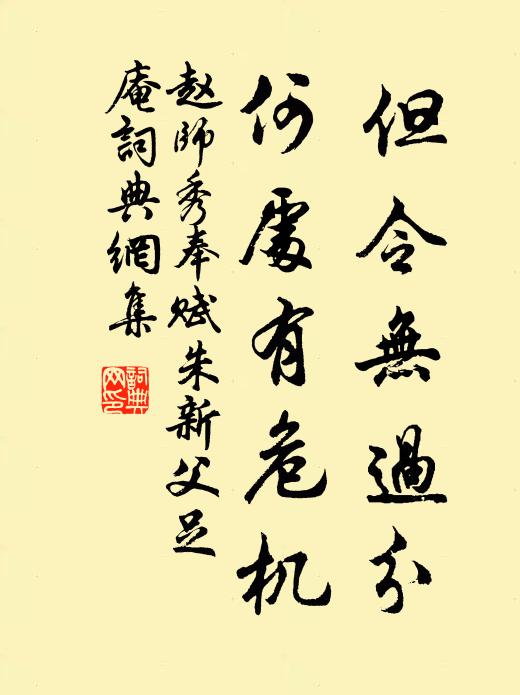 但令無過分
何處有危机
赵師秀奉賦朱新父足
庵詞典網集
詞典网印